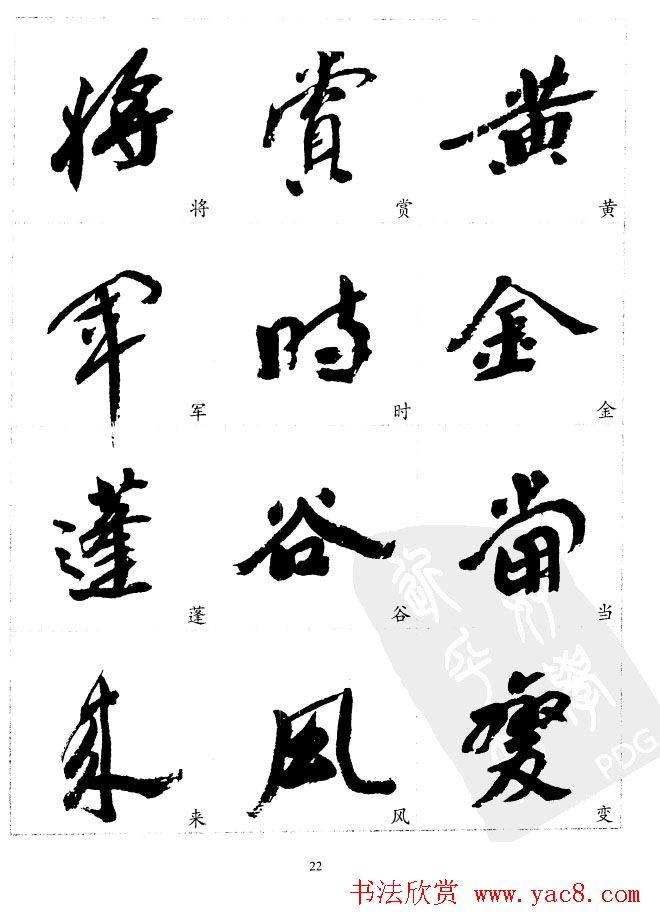 将 賞 黄
将 赏 黄
軍 時 金
军 时 金
蓬 谷 當
蓬 谷 当
来 風 變
来 风 变
PDG
22
书法欣赏 www.yac8.com